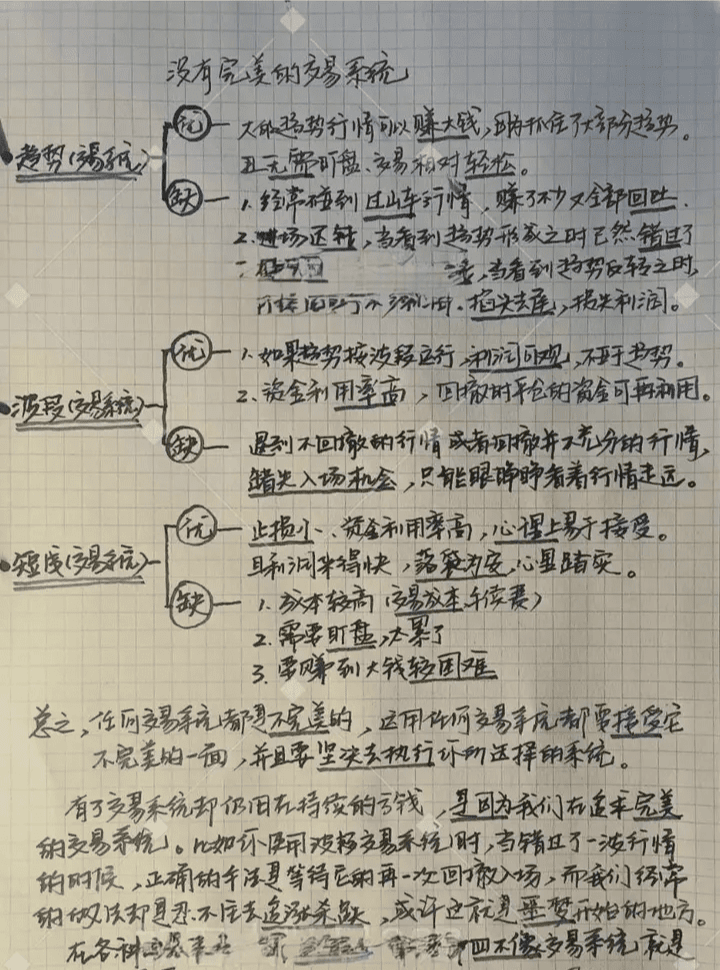 没有完美的交易系统
趋势(交易系统)
优
大的趋势行情可以赚大钱,因为抓住了大部分趋势。
且无需盯盘、交易相对轻松。
缺
1. 经常碰到过山车行情,赚了不少又全部回吐.
2. 进场迟钝,当看到趋势形成之时已然错过了
当看到趋势反转之时,
掐头去尾,损失利润。
波段(交易系统)
优
1. 如果趋势按波段运行,利润可观,不亚于趋势。
2. 资金利用率高,回撤时平仓的资金可再利用。
缺
遇到不回撤的行情或者回撤并不充分的行情,
错失入场机会,只能眼睁睁看着行情走远。
短线(交易系统)
优
止损小、资金利用率高,心理上易于接受。
且利润来得快,落袋为安,心里踏实。
缺
1. 成本较高(交易成本手续费)
2. 需要盯盘,太累了
3. 要赚到大钱较困难
总之,任何交易系统都是不完美的,运用任何交易系统都要接受它
不完美的一面,并且要坚决去执行你所选择的系统。
有了交易系统却仍旧在持续的亏钱,是因为我们在追求完美
的交易系统。比如你使用波段交易系统时,当错过了一波行情
的时候,正确的手法是等待它的再一次回撤入场,而我们经常
的做法却是忍不住去追涨杀跌,或许这就是噩梦开始的地方。
在各种 四不像交易系统就是